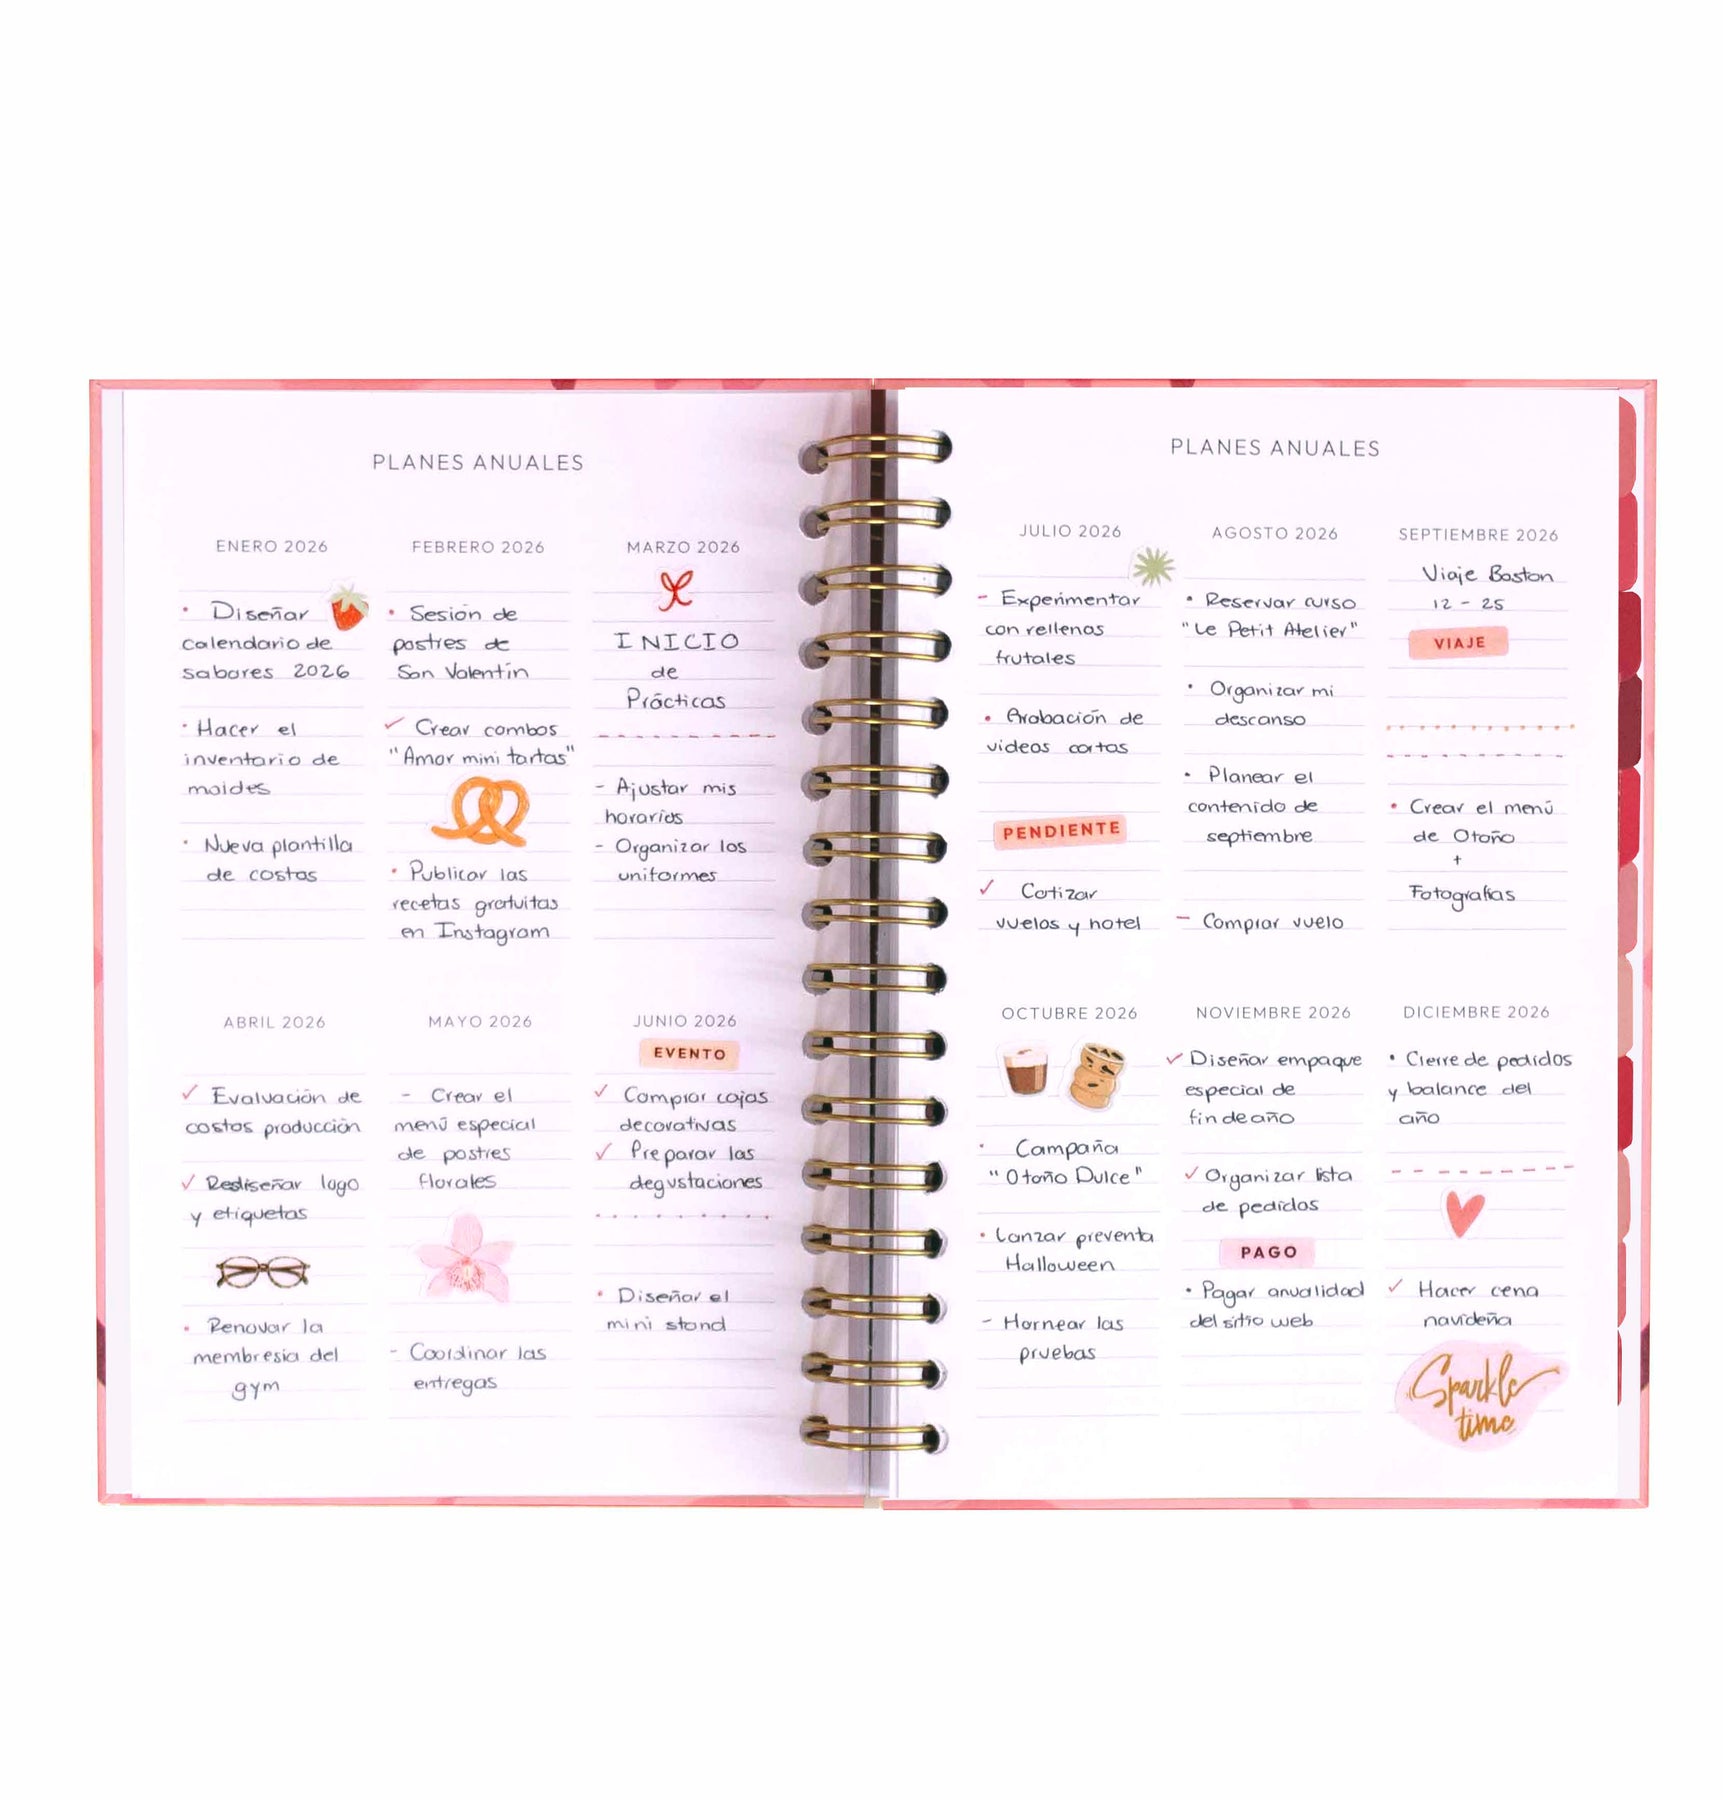 PLANES ANUALES
ENERO 2026
• Diseñar
calendario de
sabores 2026
• Hacer el
inventario de
moldes
• Nueva plantilla
de costos
FEBRERO 2026
• Sesión de
postres de
San Valentín
✓ Crear combos
"Amor mini tartas"
• Publicar las
recetas gratuitas
en Instagram
MARZO 2026
INICIO
de
Prácticas
- Ajustar mis
horarios
- Organizar los
uniformes
ABRIL 2026
✓ Evaluación de
costos producción
✓ Rediseñar logo
y etiquetas
• Renovar la
membresia del
gym
MAYO 2026
- Crear el
menú especial
de postres
florales
- Coordinar las
entregas
JUNIO 2026
EVENTO
✓ Comprar cajas
decorativas
✓ Preparar las
degustaciones
• Diseñar el
mini stand
PLANES ANUALES
JULIO 2026
- Experimentar
con rellenos
frutales
• Grabación de
videos cortos
PENDIENTE
✓ Cotizar
vuelos y hotel
AGOSTO 2026
• Reservar curso
"Le Petit Atelier"
• Organizar mi
descanso
• Planear el
contenido de
septiembre
- Comprar vuelo
SEPTIEMBRE 2026
Viaje Boston
12 - 25
VIAJE
• Crear el menú
de Otoño
+
Fotografías
OCTUBRE 2026
• Campaña
"Otoño Dulce"
• Lanzar preventa
Halloween
- Hornear las
pruebas
NOVIEMBRE 2026
✓ Diseñar empaque
especial de
fin de año
✓ Organizar lista
de pedidos
PAGO
• Pagar anualidad
del sitio web
DICIEMBRE 2026
• Cierre de pedidos
y balance del
año
✓ Hacer cena
navideña
Sparkle
time